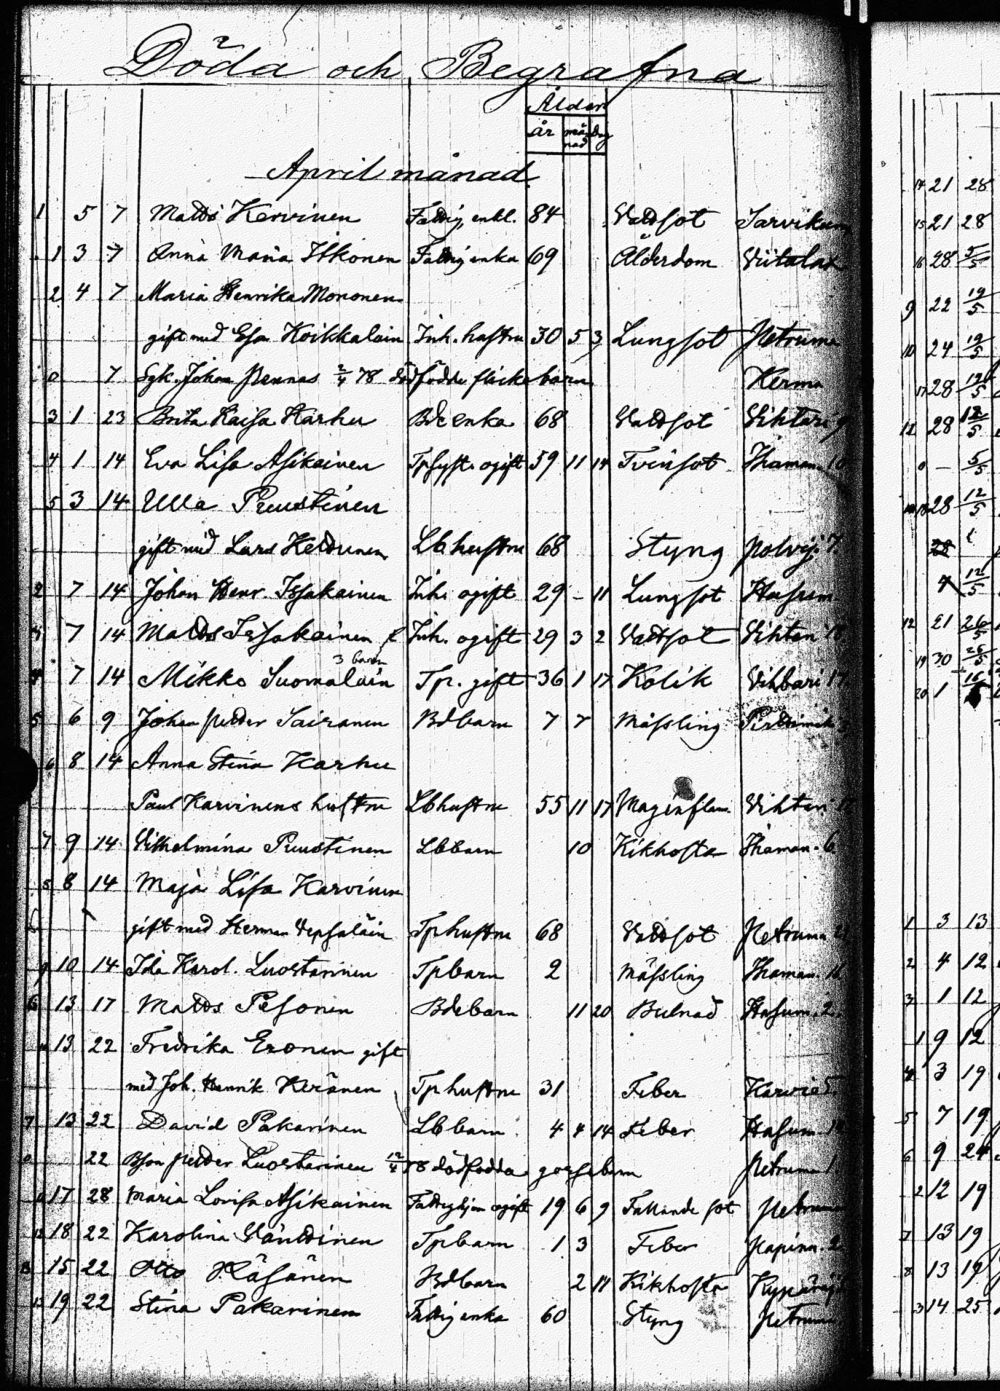 Döda och Begrafna
Ålder
år månad dag
April månad
1 5 7 Matts Karvinen Fattig enkl. 84 Vattsot Sarvikum
1 3 7 Anna Maria Itkonen Fattig enka 69 Ålderdom Viitalax
2 4 7 Maria Henrika Mononen
gift med Esa Koikkalain Inh. hustru 30 5 3 Lungsot Petruma
0 7 Sgk. Johan Pennas 2/4 78 dödfödda flickebarn Kerma
3 1 23 Brita Kaisa Karhu Bde enka 68 Vattsot Vihtari 9
4 1 14 Eva Lisa Asikainen ogift 59 11 14 Tvinsot Thaman. 10
5 3 14 Ulla Puustinen
gift med Lars Lb hustru 68 Styng Polvij. 7
2 7 14 Johan Henr. Issakainen Inh. ogift 29 - 11 Lungsot
3 7 14 Matts Issakainen Inh. ogift 29 3 2 Vattsot Vihtari 18
3 barn
4 7 14 Mikko Suomalain Tp. gift 36 1 17 Kolik Vihtari 17
5 6 9 Johan Petter Sairanen Bdbarn 7 7 Mässling
6 8 14 Anna Stina Karhu
Paul Karvinens hustru Lb hustru 55 11 17 Maginflam. Vihtari 17
7 9 14 Vilhelmina Puustinen Lbbarn 10 Kikhosta Thaman. 6
8 8 14 Maja Lisa Karvinen
gift med Herman Vepsäläin Tp hustru 68 Vattsot Petruma
9 10 14 Ida Karol. Luostarinen Tpbarn 2 Mässling Thaman. 16
6 13 17 Matts Pesonen Bdebarn 11 20 Bulnad Hasum. 2
13 22 Fredrika Eronen gift
med Joh. Henrik Keränen Tp hustru 31 Feber Karvio
7 13 22 David Pakarinen Lbbarn 4 4 14 Feber Hasum.
0 22 Bson Petter Luostarinen 12/4 78 dödfödda gossebarn Petruma 1
17 28 Maria Lovisa Asikainen ogift 19 6 9 Fallande sot Petruma
12 18 22 Karolina Väntinen Tpbarn 1 3 Feber Papinn. 2
15 22 Otto Räsänen Bdbarn 2 Kikhosta
19 22 Stina Pakarinen Fattig enka 60 Styng Petruma
14 21 28
15 21 28
16 28 5/5
9 22 19/5
10 24 19/5
17 28 12/5
11 28 12/5
0 - 5/5
28 12/5
4 12/5
12 21 26/5
19 30 26/5
20 1
1 3 13
2 4 12
3 1 12
1 9 12
4 3 19
5 7 19
6 9 24
2 12 19
7 13 19
8 13 19
3 14 25